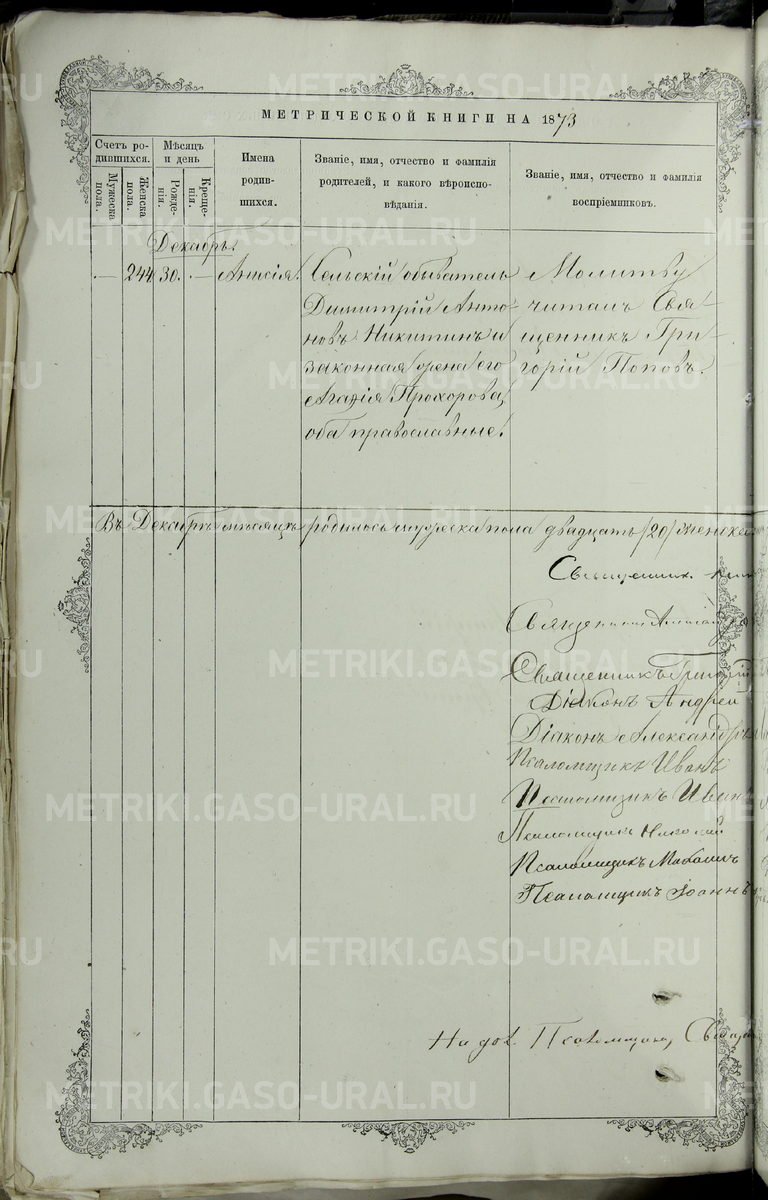 МЕТРИЧЕСКОЙ КНИГИ НА 1873
Счетъ ро-
дившихся.
Мужеска
пола.
Женска
пола.
Мѣсяцъ
и день
Рожде-
нія.
Креще-
нія.
Имена
родив-
шихся.
Званіе, имя, отчество и фамилія
родителей, и какого вѣроиспо-
вѣданія.
Званіе, имя, отчество и фамилія
воспріемниковъ.
Декабрь.
244 30. Анисія.
Сельскій обыватель
Димитрій Анто-
новъ Никитинъ и
законная жена его
Агафія Прохорова,
оба православные.
Молитву
читалъ Свя-
щенникъ Гри-
горій Поповъ.
Въ Декабрѣ мѣсяцѣ родилось мужеска пола двадцать /20/ женска
Священникъ
Священникъ
Священникъ Григорій
Діаконъ Андрей
Діаконъ Александръ
Псаломщикъ Иванъ
Псаломщикъ Иванъ
Псаломщикъ Николай
Псаломщикъ
Псаломщикъ Іоаннъ
METRIKI.GASO-URAL.RU